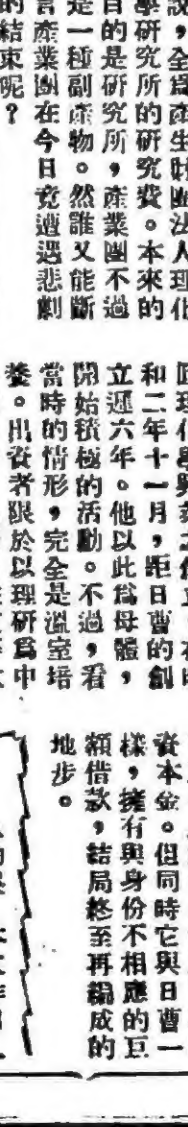 說,全爲產生財團法人理化
學研究所的研究費。本來的
目的是研究所,產業團不過
是一種副產物。然誰又能斷
言產業團在今日竟遭遇悲劇
的結束呢?
和二年十一月,距日曹的創
立遲六年。他以此爲母體,
開始積極的活動。不過,看
當時的情形,完全是溫室培
養。出資者限於以理研爲中
資本金。但同時它與日曹一
樣,擁有與身份不相應的巨
額借款,結局終至再編成的
地步。